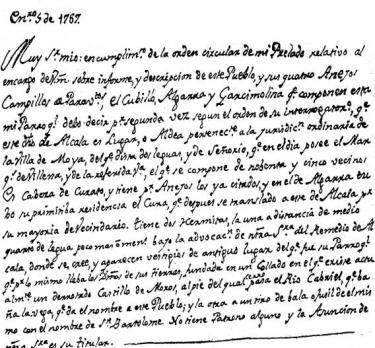 En.ro 5 de 1787.
Muy S.r mio: en cumplim.to de la orden circular de mi Prelado relativo al
encargo de Vm sobre informe, y descripcion de este Pueblo, y sus quatro Anejos
Campillos Paravt.s, el Cubillo, Algarra y Garcimolina q.e componen esta
mi Parroq.a debo decir p.r segunda vez segun el orden de su interrogator.o q.e
este dho de Alcala es Lugar, o Aldea perteneciente a la jurisdic.n ordinaria de
la Villa de Moya, del q.e dista dos leguas, y de Señorio, q.e en el dia posee el Mar
q.s de Villena, y de la referida v.a, el q.e se compone de nobenta y cinco vecinos
Es Cabeza de Curato, y tiene p.r Anejos los ya citados, y en el de Algarra tu
bo su primitiba residencia el Cura q.e despues se translado a este de Alcala p.r
su mayoria de Vecindario. tiene dos Hermitas, la una a distancia de medio
quarto de legua poco mas o men.s bajo la advocac.n de ntra S.ra del Remedio de Al
cala, donde se cree, y aparecen vestigios de antiguo lugar del q.e fue su Parroq.l
q.e p.r lo mismo llaba los Diezmos de sus tierras, fundada en un Collado en el q.e existe actu
alm.te un derrotado Castillo de Moros, al pie del qual pasa el Rio Cabriel, q.e ba
ña la vega, q.e da el nombre a este Pueblo; y la otra a un tiro de bala de fusil de el mis
mo con el nombre de S.n Bartolome. No tiene Patrono alguno y la Asuncion de
S.ra es su titular.